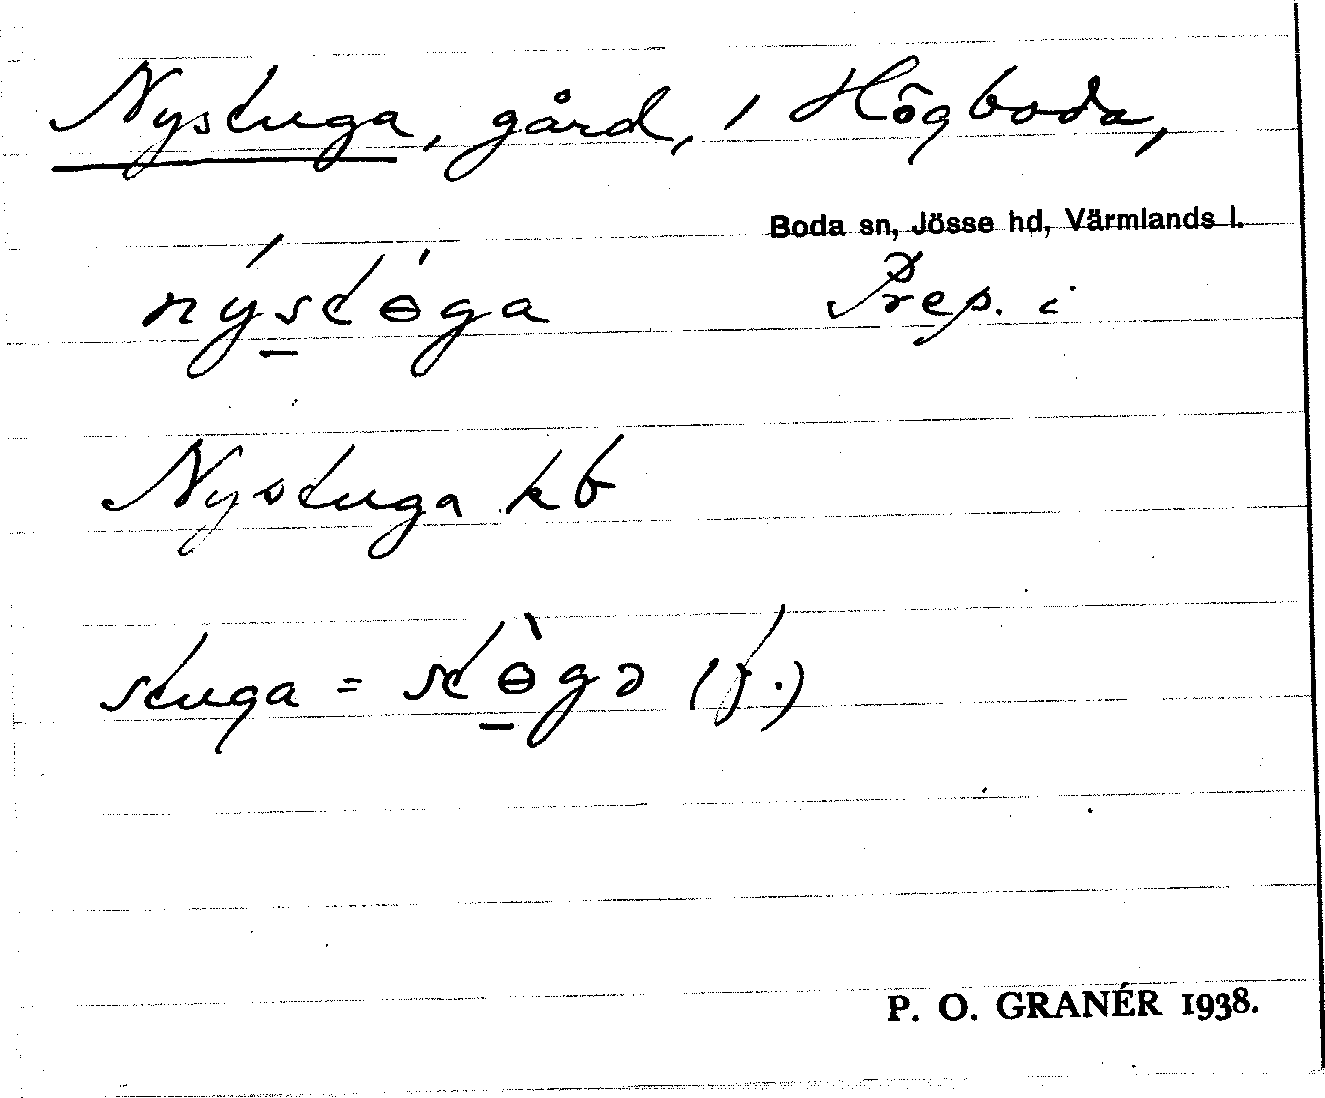 Nystuga, gård, i Högboda,
Boda sn, Jösse hd, Värmlands l.
nýs̲tɵ́ga Prep. i
Nystuga kb
stuga = stɵ̲̀gə (f.)
P. O. GRANÉR 1938.